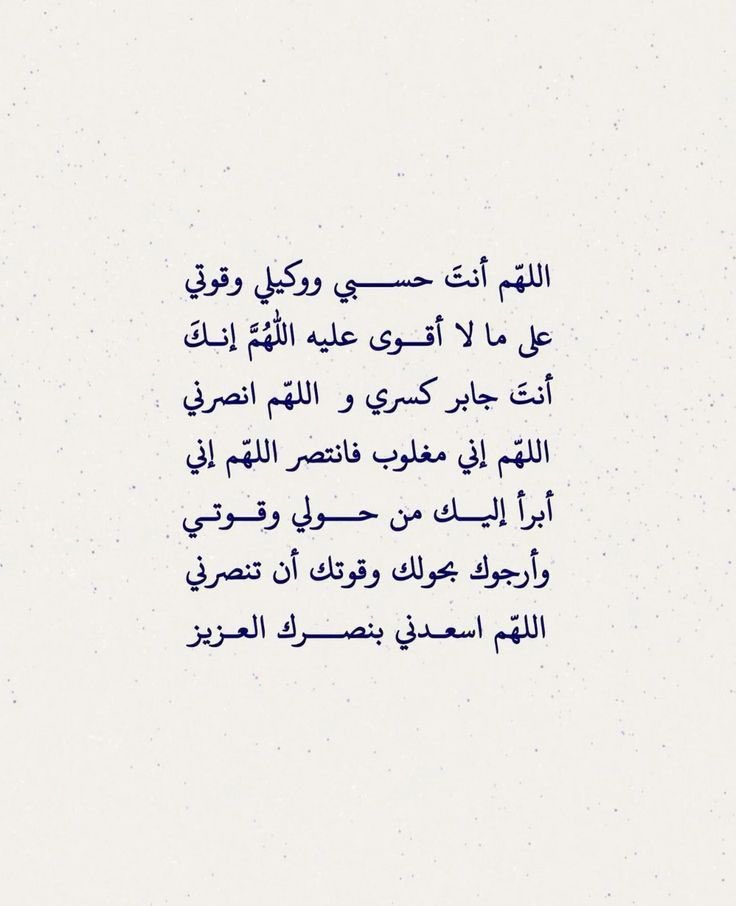 اللهّم أنتَ حســـبي ووكيلي وقوتي
على ما لا أقــوى عليه اللهُمَّ إنــكَ
أنتَ جابر كسري و اللهّم انصرني
اللهّم إني مغلوب فانتصر اللهّم إني
أبرأ إليــك من حــولي وقــوتــي
وأرجوك بحولك وقوتك أن تنصرني
اللهّم اسعـدني بنصـــرك العـزيز